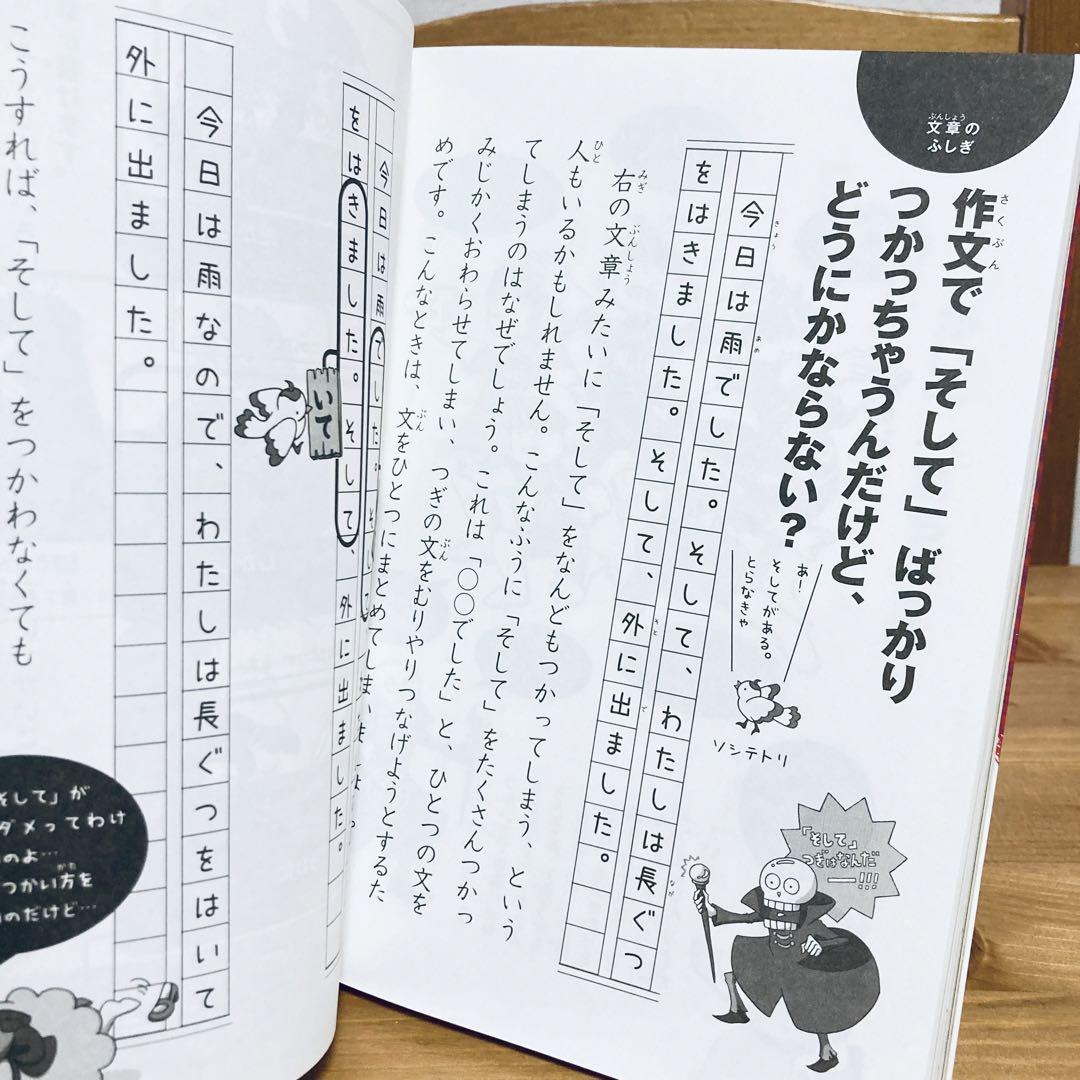 文章の
ふしぎ
作文で「そして」ばっかり
つかっちゃうんだけど、
どうにかならない？
あ！
そしてがある。
とらなきゃ
ソシテトリ
「そして」
つぎはなんだ
ー!!!
今日は雨でした。そして、わたしは長ぐつ
をはきました。そして、外に出ました。
右の文章みたいに「そして」をなんどもつかってしまう、という
人もいるかもしれません。こんなふうに「そして」をたくさんつかっ
てしまうのはなぜでしょう。これは「〇〇でした」と、ひとつの文を
みじかくおわらせてしまい、つぎの文をむりやりつなげようとするた
めです。こんなときは、文をひとつにまとめてしま
今日は雨でした。そして
をはきました。そして、外に出ました。
いて
今日は雨なので、わたしは長ぐつをはいて
外に出ました。
こうすれば、「そして」をつかわなくても
そして」が
ダメってわけ
のよ…
つかい方を
のだけど…